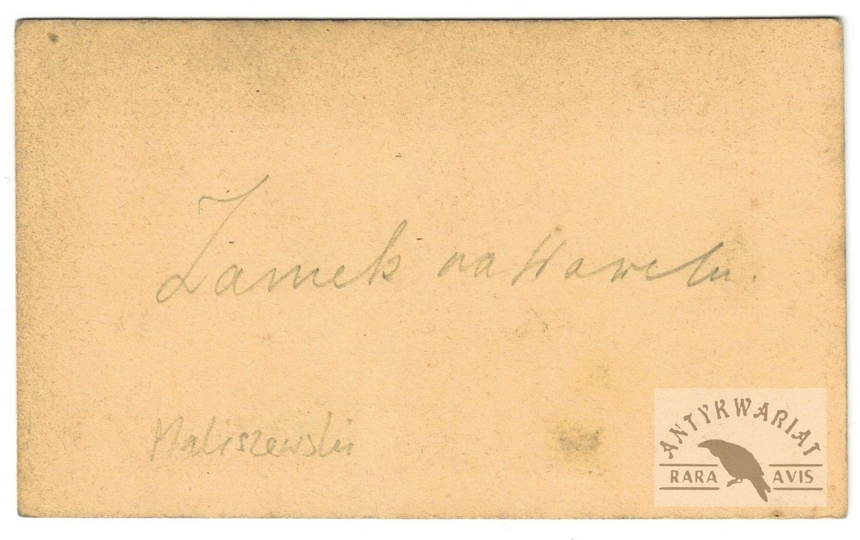 Zamek na Wawelu.
Maliszewski
ANTYKWARIAT
RARA AVIS